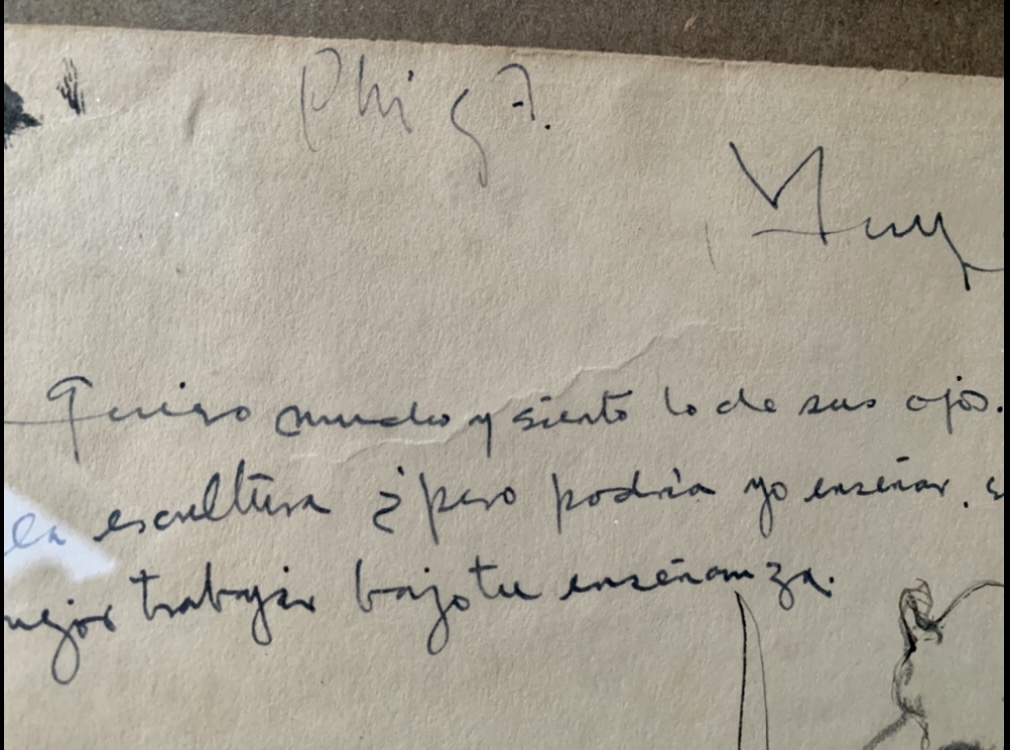 Muy
Quiero mucho y siento lo de sus ojos.
la escultura ¿pero podría yo enseñar.
mejor trabajar bajo tu enseñanza.